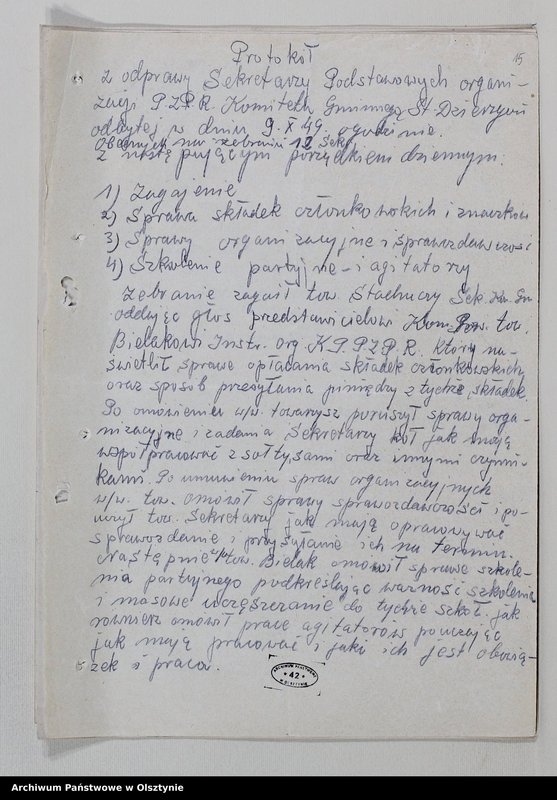 15
Protokół
z odprawy Sekretarzy Podstawowych organi-
zacji P.Z.P.R. Komitetu Gminnego St. Dzierzgoń
odbytej w dniu 9. X 49. o godzinie.
Obecnych na zebraniu 12 Sekr.
z następującym porządkiem dziennym:
1) Zagajenie
2) Sprawa składek członkowskich i znaczków
3) Sprawy organizacyjne i sprawozdawczość
4) Szkolenie partyjne i agitatorzy
Zebranie zagaił tow. Stachuczy Sek. Kom. Gm.
oddając głos przedstawicielowi Kom. Pow. tow.
Bielakowi Instr. org. K.P.P.Z.P.R. który na-
świetlił sprawę opłacania składek członkowskich
oraz sposób przesyłania pieniędzy z tychże składek.
Po omówieniu w/w. towarzysz poruszył sprawy orga-
nizacyjne i zadania Sekretarzy kół jak mają
współpracować z sołtysami oraz innymi czynni-
kami. Po omówieniu spraw organizacyjnych
w/w. tow. omówił sprawy sprawozdawczości i po-
uczył tow. Sekretarzy jak mają opracowywać
sprawozdanie i przysyłanie ich na terminu.
Następnie w/w tow. Bielak omówił sprawę szkole-
nia partyjnego podkreślając ważność szkolenia
i masowe uczęszczanie do tychże szkół. jak
również omówił pracę agitatorów pouczając
jak mają pracować i jaki ich jest obowią-
zek i praca.
ARCHIWUM PAŃSTWOWE
* 42 *
W OLSZTYNIE
Archiwum Państwowe w Olsztynie